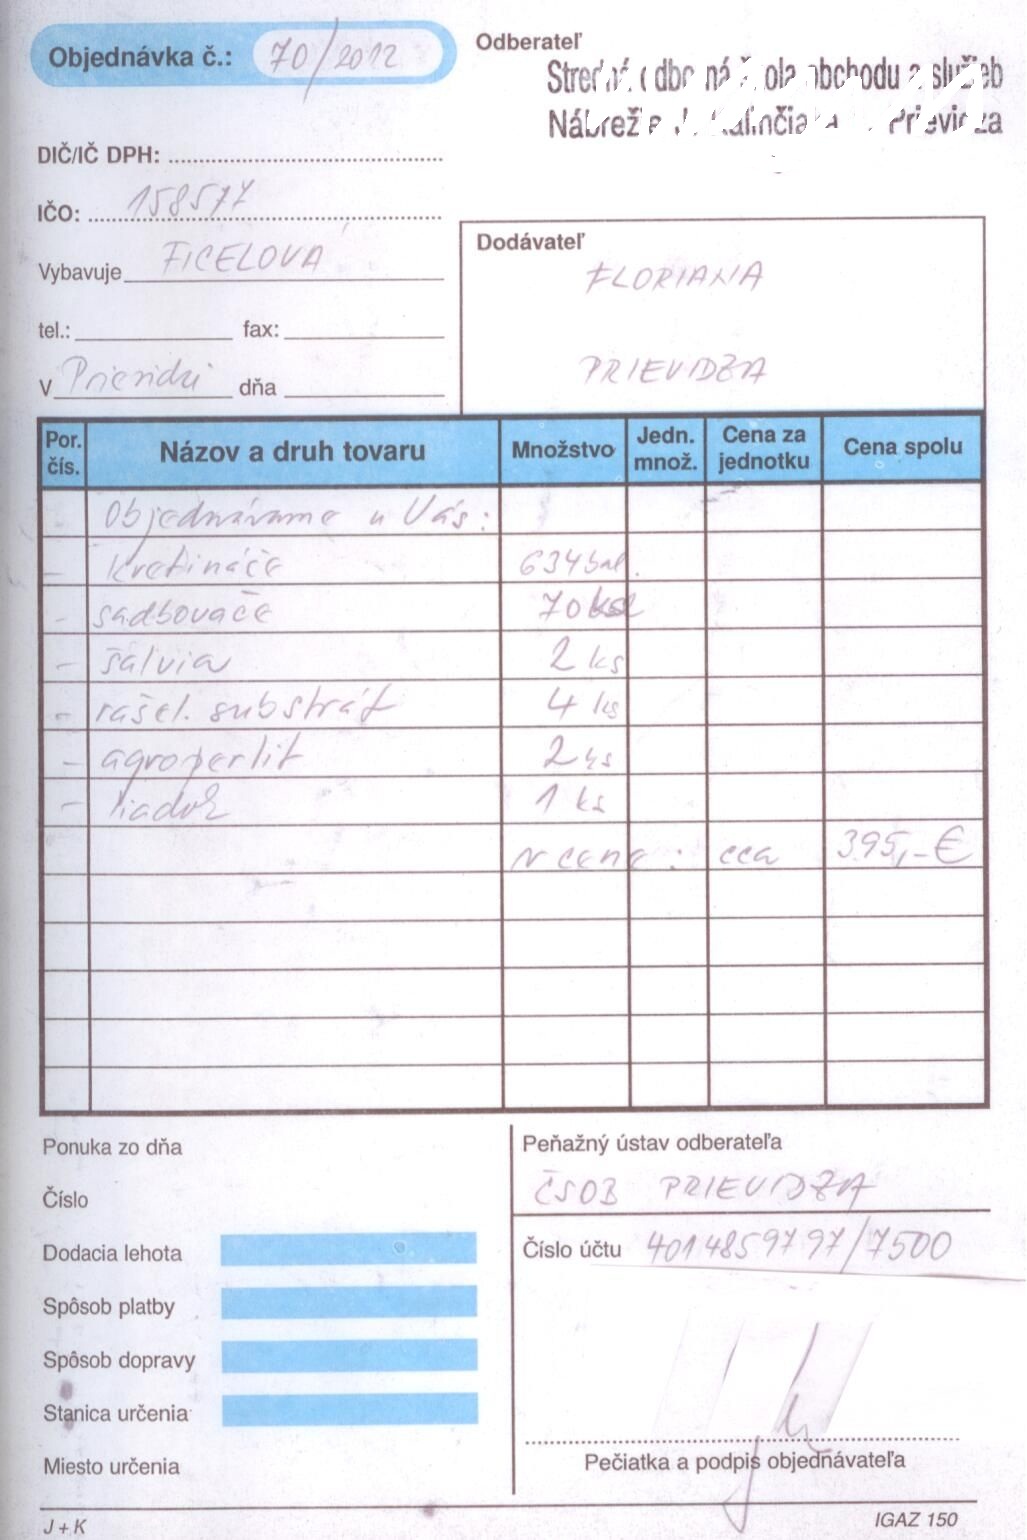 Objednávka č.: 70/2012
Odberateľ
Stredná odborná škola obchodu a služieb
Nábrežie J. Kalinčiaka Prievidza
DIČ/IČ DPH:
IČO: 158577
Vybavuje FICELOVÁ
tel.: fax:
V Prievidzi dňa
Dodávateľ
FLORIANA
PRIEVIDZA
Por. čís. Názov a druh tovaru Množstvo Jedn. množ. Cena za jednotku Cena spolu
- Objednávame u Vás:
- kvetináče 634 bal.
- sadbovače 70 ks
- šalvia 2 ks
- rašel. substrát 4 ks
- agroperlit 2 ks
- 1 ks
v cene: cca 395,-€
Ponuka zo dňa
Číslo
Dodacia lehota
Spôsob platby
Spôsob dopravy
Stanica určenia
Miesto určenia
Peňažný ústav odberateľa
ČSOB PRIEVIDZA
Číslo účtu 4014859797/7500
Pečiatka a podpis objednávateľa
J + K
IGAZ 150